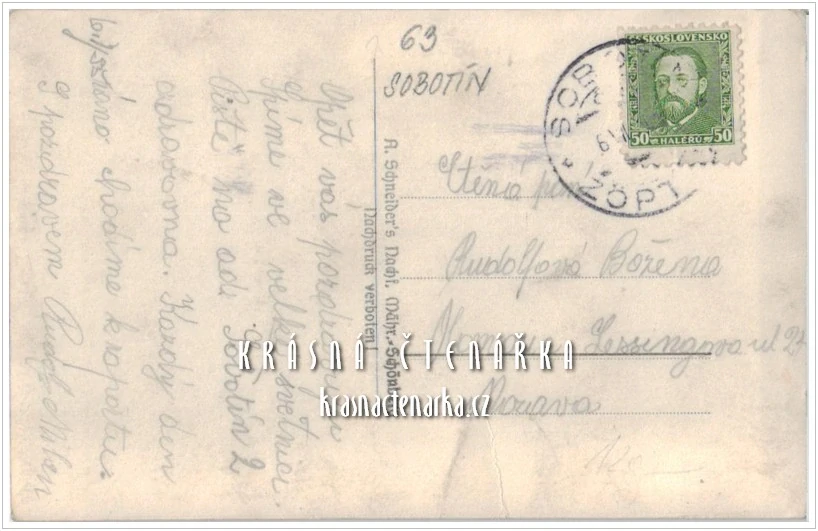 63
SOBOTÍN
ČESKOSLOVENSKO
50 HALÉŘŮ 50
SOBOTÍN
ZÖPTAU
Opět vás pozdravuji
Spíme ve velké světnici.
Pište na adr. Sobotín 2
ozdravovna. Každý den
ráno chodíme k raportu.
S pozdravem Rudolf
A. Schneider's Nachf., Mähr.-Schönberg
Nachdruck verboten
Ctěná paní
Rudolfová Božena
Lessingova ul 27
Morava
KRÁSNÁ ČTENÁŘKA
krasnactenarka.cz
120